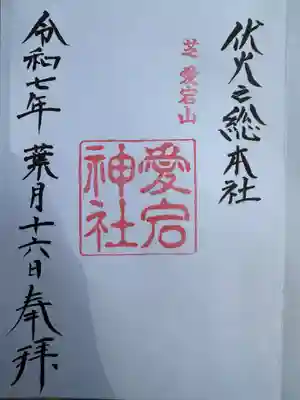 伏火之総本社
芝愛宕山
愛宕神社
令和七年 葉月十六日 奉拝